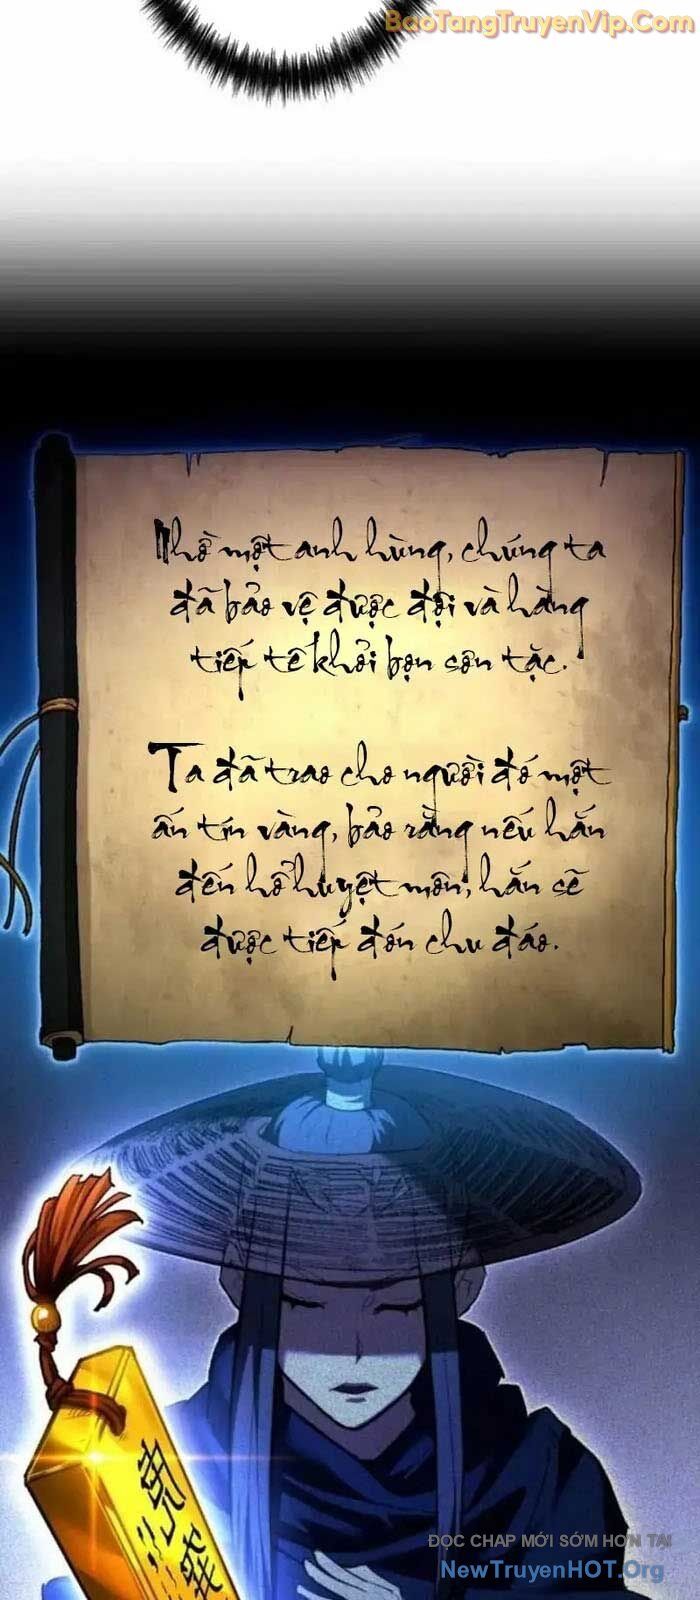 BaoTangTruyenVip.Com
Nhờ một anh hùng, chúng ta
đã bảo vệ được đội và hàng
tiếp tế khỏi bọn sơn tặc.
Ta đã trao cho người đó một
ấn tín vàng, bảo rằng nếu hắn
đến hổ huyệt môn, hắn sẽ
được tiếp đón chu đáo.
ĐỌC CHAP MỚI SỚM HƠN TẠI
NewTruyenHOT.Org